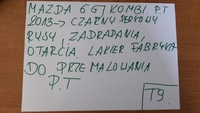 MAZDA 6 GJ KOMBI PT
2013 → CZARNY PERŁOWY
RYSY, ZADRAPANIA,
OTARCIA, LAKIER FABRYKA
DO PRZEMALOWANIA
P.T
T9